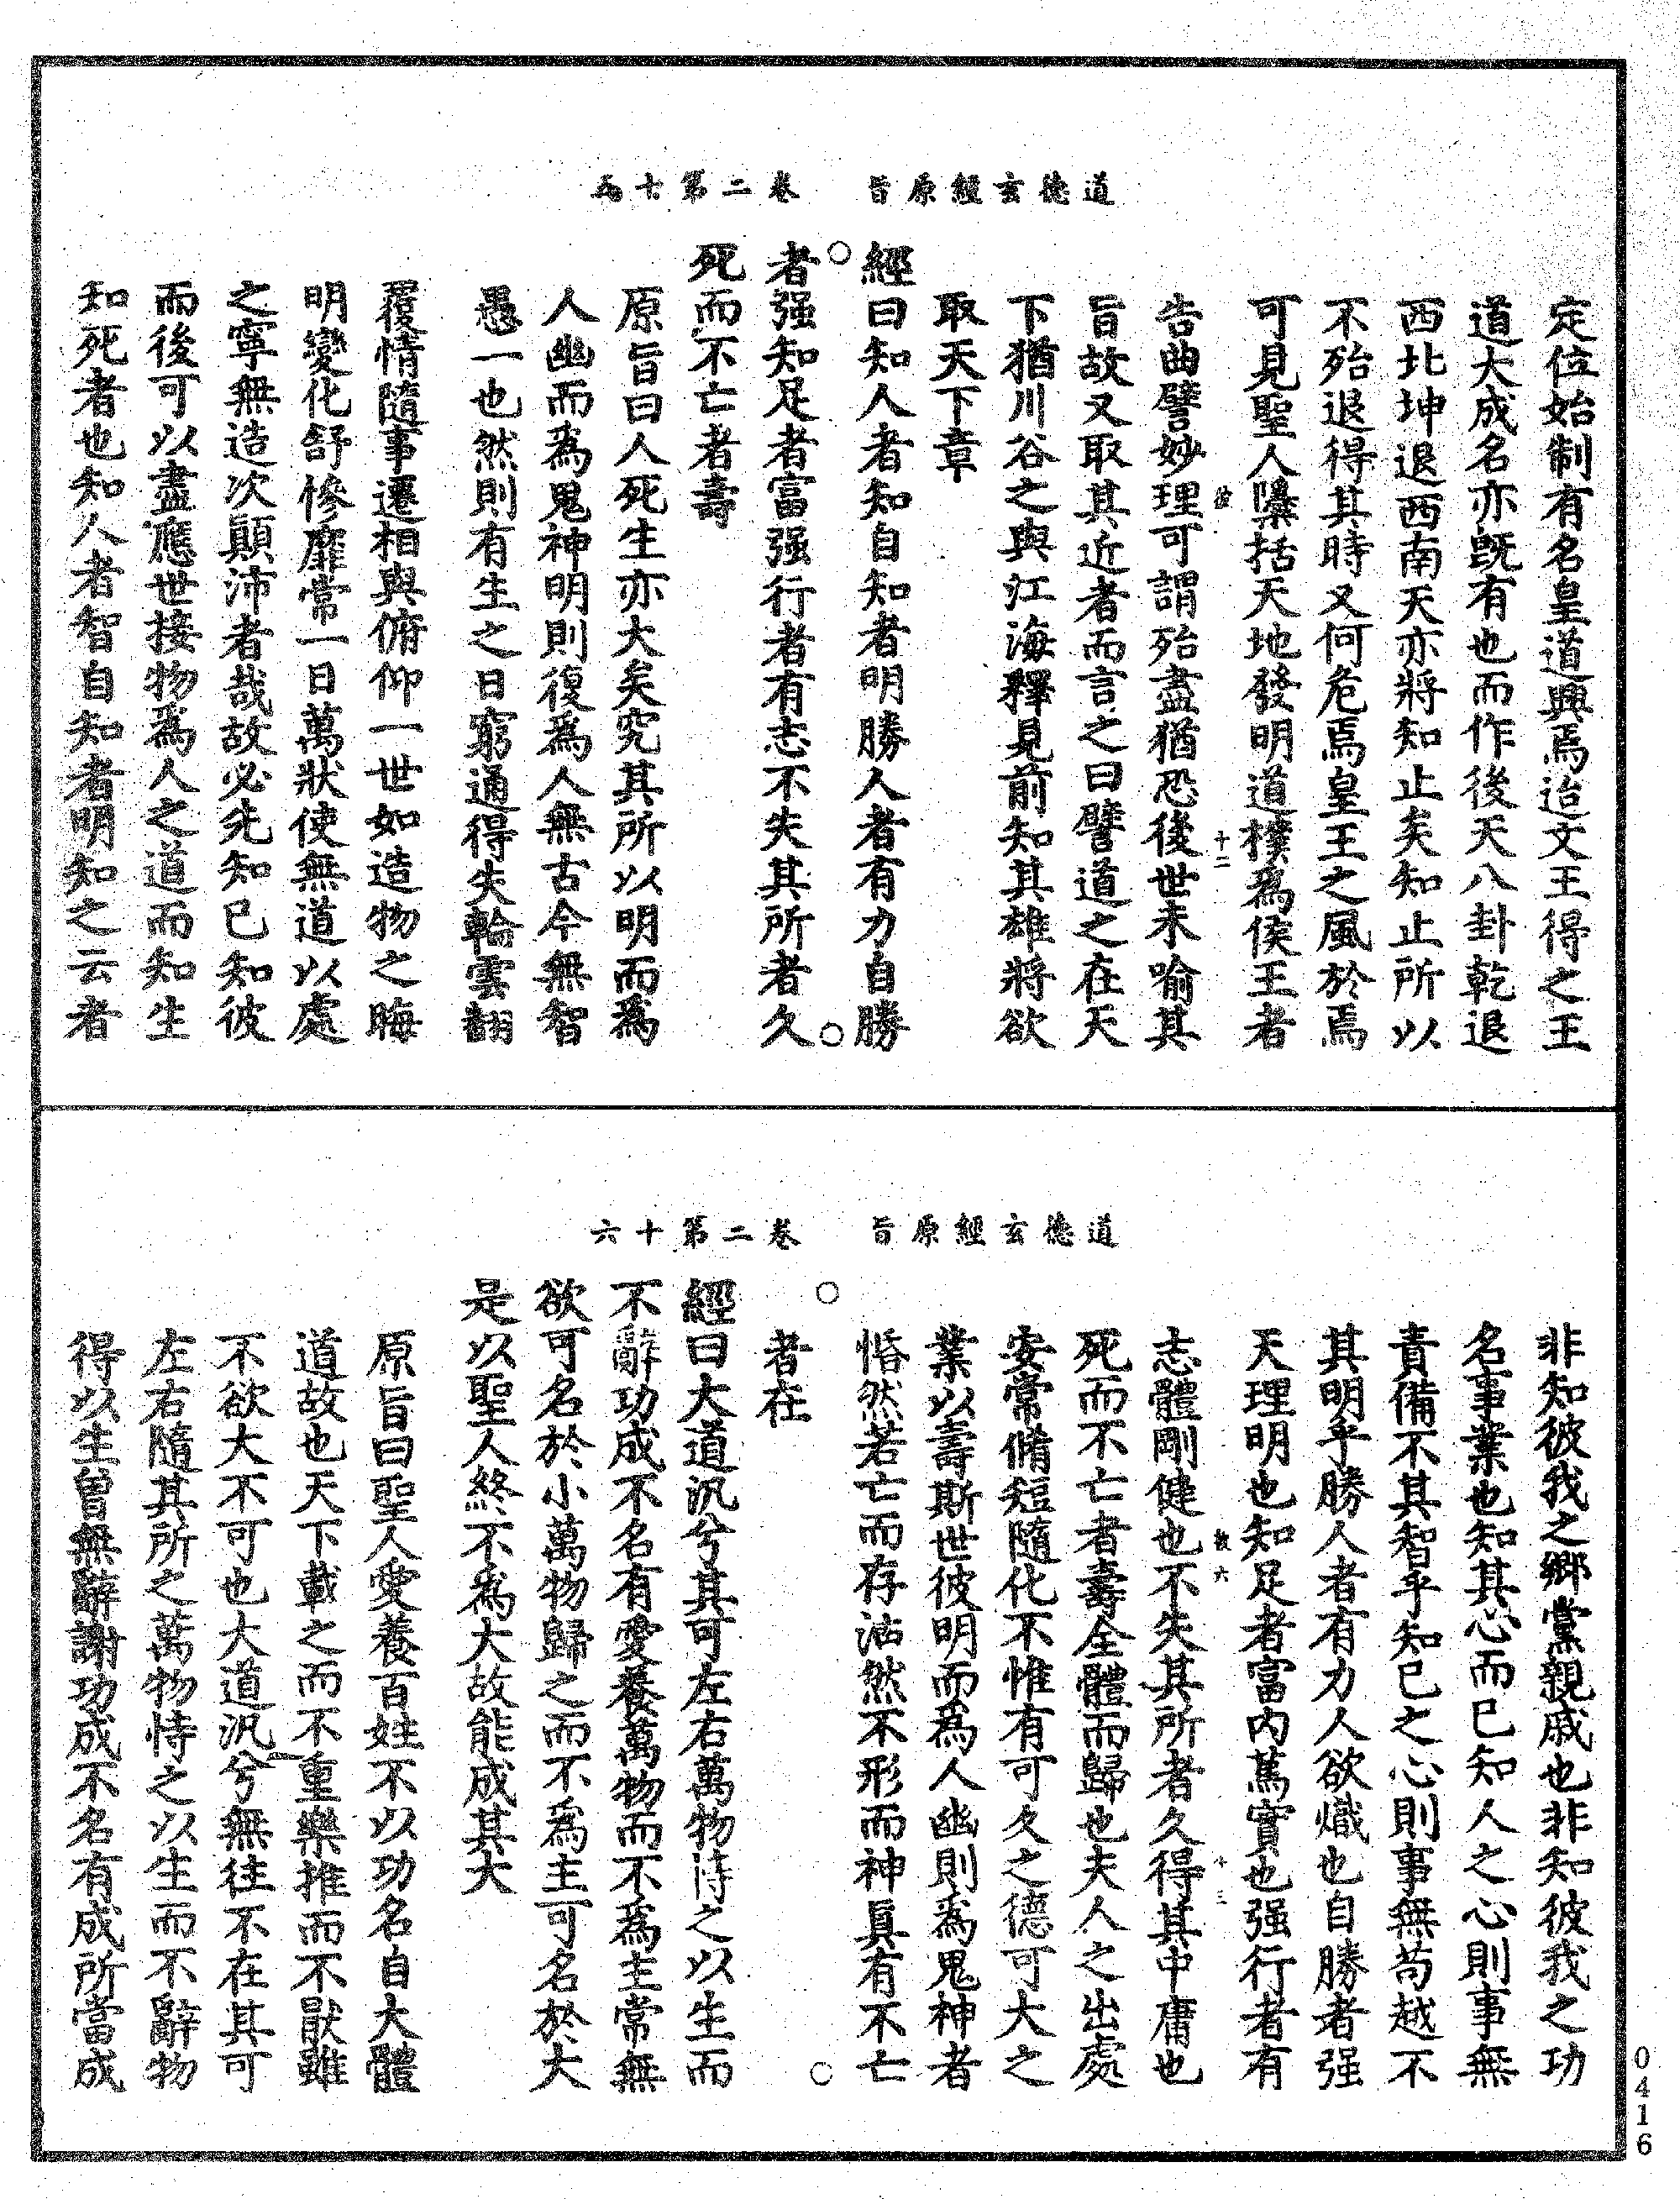 道德玄經原旨　卷二第十五
定位始制有名皇道興焉迨文王得之王
道大成名亦旣有也而作後天八卦乾退
西北坤退西南天亦將知止矣知止所以
不殆退得其時又何危焉皇王之風於焉
可見聖人檃括天地發明道樸爲侯王者
十二
告曲譬妙理可謂殆盡猶恐後世未喻其
旨故又取其近者而言之曰譬道之在天
下猶川谷之與江海釋見前知其雄將欲
取天下章
經曰知人者知自知者明勝人者有力自勝
○者强知足者富强行者有志不失其所者久○
死而不亡者壽
原旨曰人死生亦大矣究其所以明而爲
人幽而爲鬼神明則復爲人無古今無智
愚一也然則有生之日窮通得失輪雲翻
覆情隨事遷相與俯仰一世如造物之晦
明變化舒慘靡常一日萬狀使無道以處
之寧無造次顚沛者哉故必先知已知彼
而後可以盡應世接物爲人之道而知生
知死者也知人者智自知者明知之云者
道德玄經原旨　卷二第十六
非知彼我之鄉黨親戚也非知彼我之功
名事業也知其心而已知人之心則事無
責備不其智乎知已之心則事無苟越不
其明乎勝人者有力人欲熾也自勝者强
天理明也知足者富内篤實也强行者有
六
十三
志體剛健也不失其所者久得其中庸也
死而不亡者壽全體而歸也夫人之出處
安常脩短隨化不惟有可久之德可大之
業以壽斯世彼明而爲人幽則爲鬼神者
惛然若亡而存沾然不形而神眞有不亡
者在
○　○
經曰大道汎兮其可左右萬物恃之以生而
不辭功成不名有愛養萬物而不爲主常無
欲可名於小萬物歸之而不爲主可名於大
是以聖人終不爲大故能成其大
原旨曰聖人愛養百姓不以功名自大體
道故也天下載之而不重樂推而不厭雖
不欲大不可也大道汎兮無往不在其可
左右隨其所之萬物恃之以生而不辭物
得以生曽無辭謝功成不名有成所當成
0416